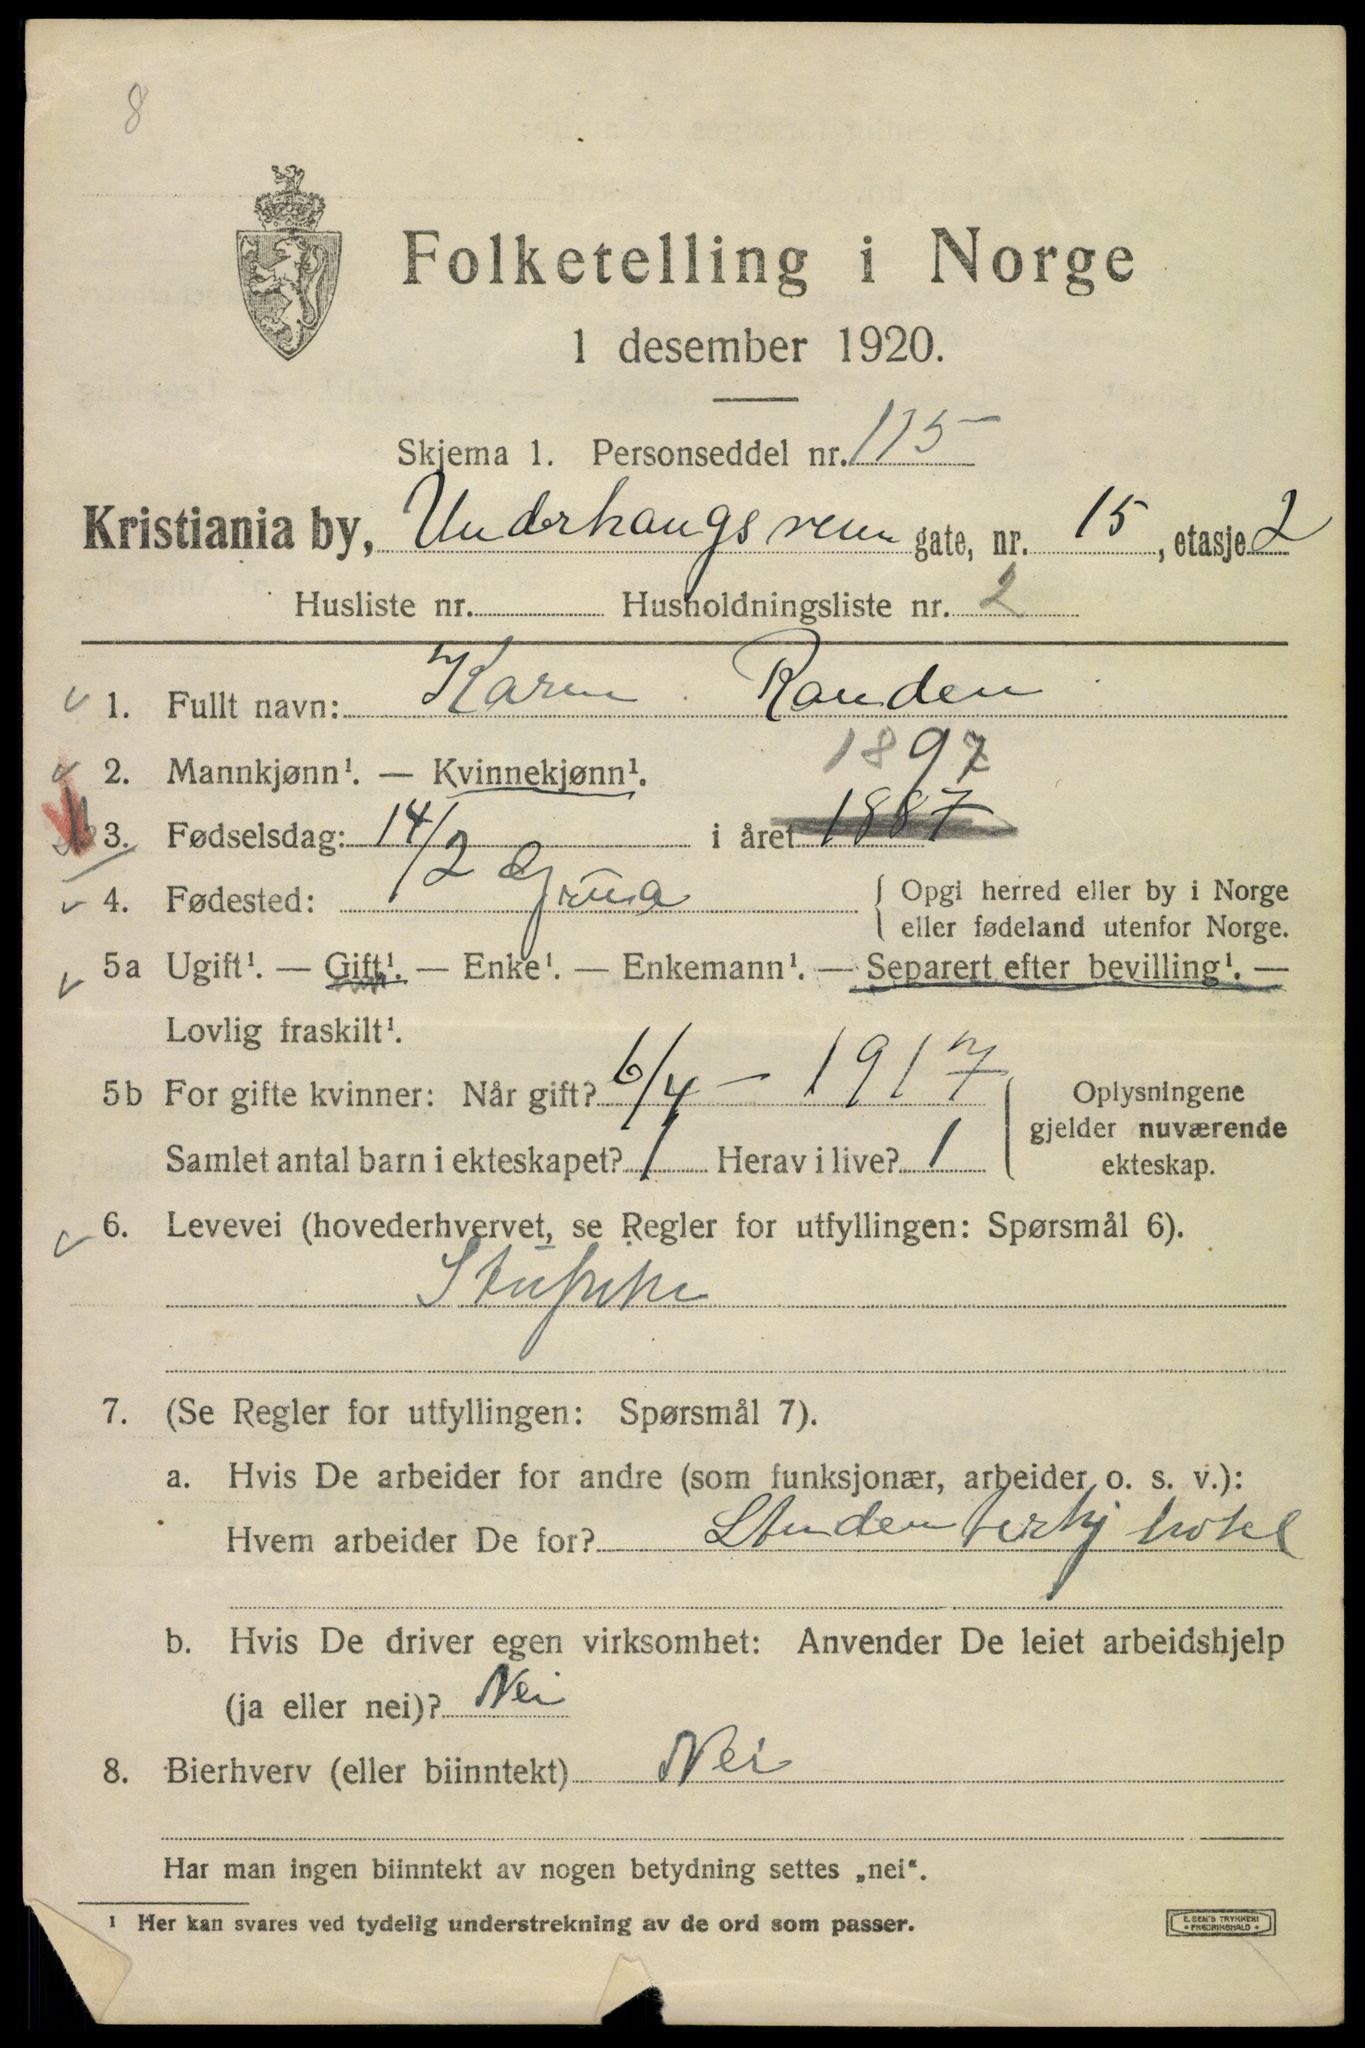 8
Folketelling i Norge
1 desember 1920.
Skjema 1. Personseddel nr. 115
Kristiania by, Underhaugsveien gate, nr. 15, etasje 2
Husliste nr. Husholdningsliste nr. 2
1. Fullt navn: Karen Randen
1897
2. Mannkjønn¹. — Kvinnekjønn¹.
3. Fødselsdag: 14/2 i året 1887
4. Fødested: Grua
{ Opgi herred eller by i Norge
eller fødeland utenfor Norge.
5a Ugift¹. — Gift¹. — Enke¹. — Enkemann¹. — Separert efter bevilling¹. —
Lovlig fraskilt¹.
5b For gifte kvinner: Når gift? 6/4 – 1917
Samlet antal barn i ekteskapet? 1 Herav i live? 1
Oplysningene
gjelder nuværende
ekteskap.
6. Levevei (hovederhvervet, se Regler for utfyllingen: Spørsmål 6).
Stufpike
7. (Se Regler for utfyllingen: Spørsmål 7).
a. Hvis De arbeider for andre (som funksjonær, arbeider o. s. v.):
Hvem arbeider De for? hotel
b. Hvis De driver egen virksomhet: Anvender De leiet arbeidshjelp
(ja eller nei)? Nei
8. Bierhverv (eller biinntekt) Nei
Har man ingen biinntekt av nogen betydning settes „nei“.
¹ Her kan svares ved tydelig understrekning av de ord som passer.
E. SEM'S TRYKKERI
FREDRIKSHALD